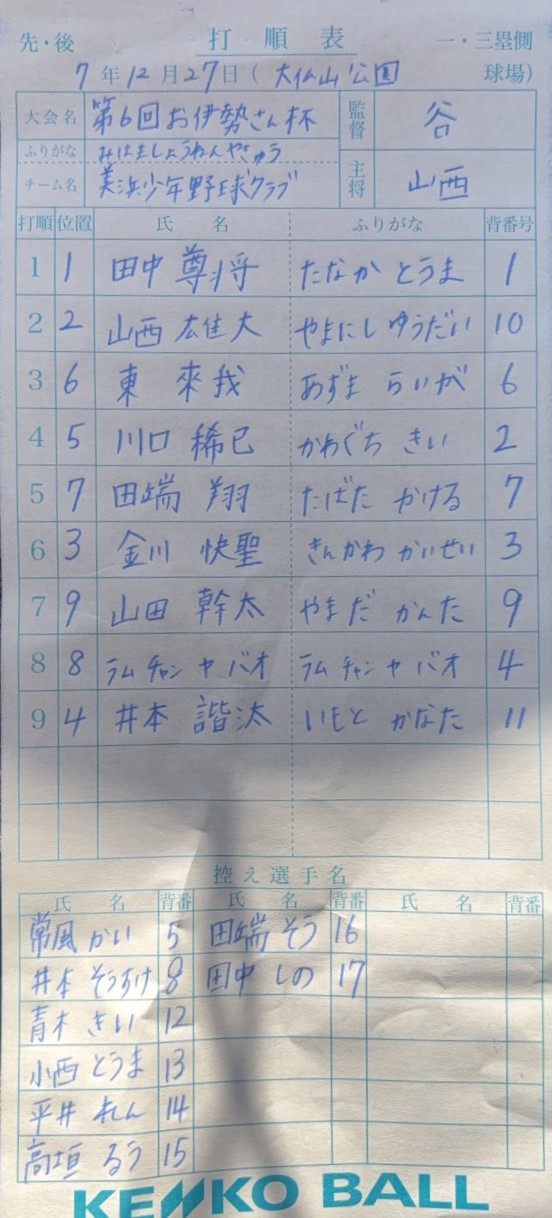 先・後 打順表 一・三塁側
7年12月27日(大仏山公園 球場)
大会名 第6回お伊勢さん杯 監督 谷
ふりがな みはましょうねんやきゅう
チーム名 美浜少年野球クラブ 主将 山西
打順 位置 氏名 ふりがな 背番号
1 1 田中 尊将 たなか とうま 1
2 2 山西 雄大 やまにし ゆうだい 10
3 6 東 來我 あずま らいが 6
4 5 川口 稀己 かわぐち きい 2
5 7 田端 翔 たばた かける 7
6 3 金川 快聖 きんかわ かいせい 3
7 9 山田 幹太 やまだ かんた 9
8 8 ラム チャン ヤ バオ ラム チャン ヤ バオ 4
9 4 井本 諧汰 いもと かなた 11
控え選手名
氏名 背番 氏名 背番 氏名 背番
常風 かい 5 田端 そう 16
井本 そうすけ 8 田中 しの 17
青木 きい 12
小西 とうま 13
平井 れん 14
高垣 るう 15
KENKO BALL